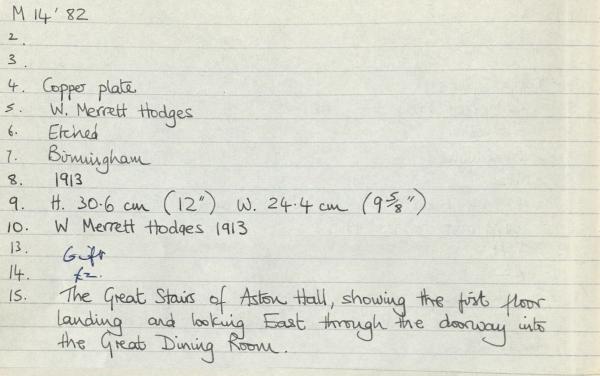 M 14' 82
2.
3.
4. Copper plate
5. W. Merrett Hodges
6. Etched
7. Birmingham
8. 1913
9. H. 30.6 cm (12") W. 24.4 cm (9 5/8")
10. W Merrett Hodges 1913
13. Gift
14. £2.
15. The Great Stairs of Aston Hall, showing the first floor
landing and looking East through the doorway into
the Great Dining Room.